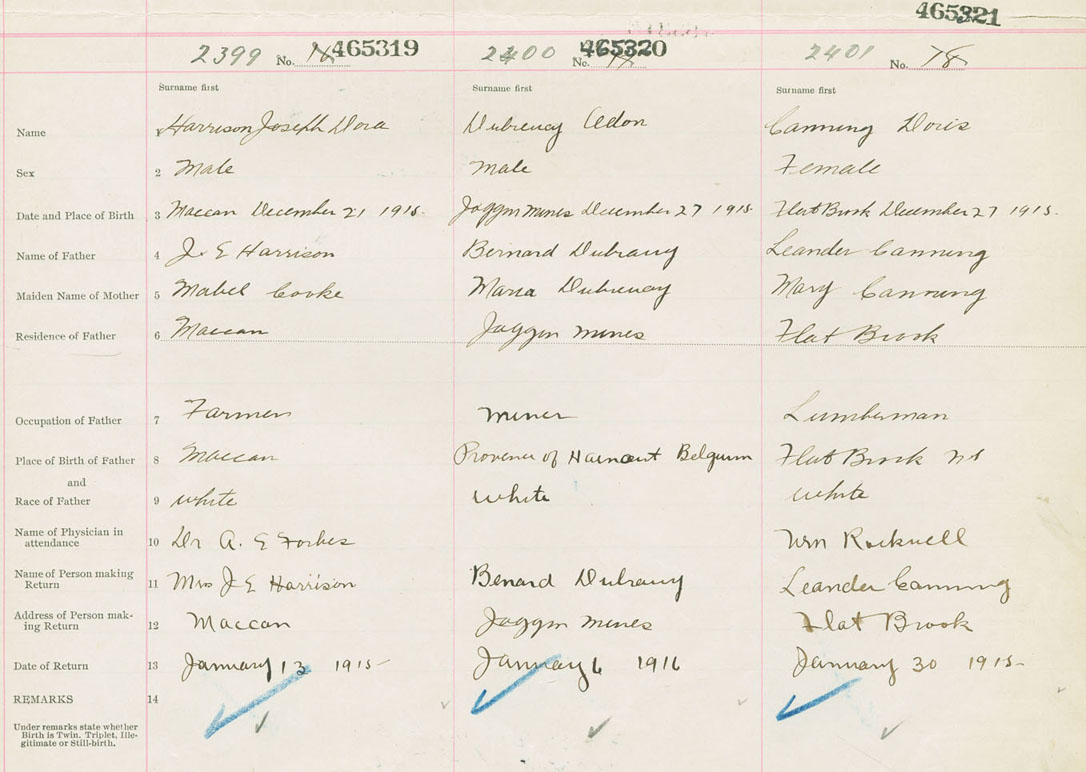 465321
2399 No. 465319 2400 No. 465320 2401 No. 78
Surname first Surname first Surname first
Name 1 Harrison Joseph Dora Dubrency Canning Doris
Sex 2 Male Male Female
Date and Place of Birth 3 Maccan December 21 1915. Joggin Mines December 27 1915. Flat Brook December 27 1915.
Name of Father 4 J. E Harrison Bernard Leander Canning
Maiden Name of Mother 5 Mabel Cooke Maria Dubrency Mary Canning
Residence of Father 6 Maccan Joggin Mines Flat Brook
Occupation of Father 7 Farmer Miner Lumberman
Place of Birth of Father 8 Maccan Province of Hainout Belgium Flat Brook NS
and
Race of Father 9 white white white
Name of Physician in
attendance 10 Dr A. E Forbes Wm Rockwell
Name of Person making
Return 11 Mrs J E Harrison Benard Leander Canning
Address of Person mak-
ing Return 12 Maccan Joggin Mines Flat Brook
Date of Return 13 January 13 1915 January 6 1916 January 30 1915
REMARKS 14
Under remarks state whether
Birth is Twin. Triplet, Ille-
gitimate or Still-birth.